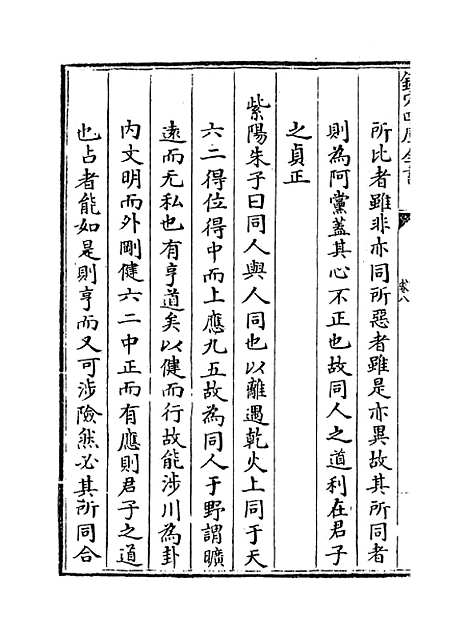 所比者雖非亦同所惡者雖是亦異故其所同者
則為阿黨蓋其心不正也故同人之道利在君子
之貞正
紫陽朱子曰同人與人同也以離遇乾火上同于天
六二得位得中而上應九五故為同人于野謂曠
逺而无私也有亨道矣以健而行故能涉川為卦
内文明而外剛健六二中正而有應則君子之道
也占者能如是則亨而又可涉險然必其所同合